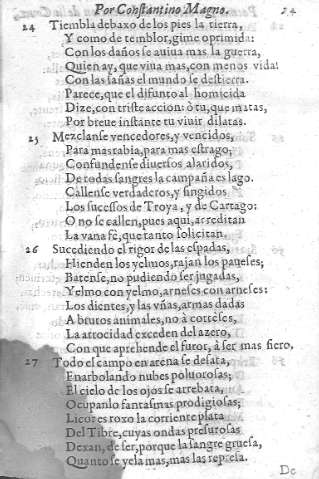 Por Constantino Magno. 54
24 Tiembla debaxo de los pies la tierra,
Y como de temblor, gime oprimida:
Con los daños se auiua mas la guerra,
Quien ay, que viua mas, con menos vida!
Con las sañas el mundo se destierra.
Parece, que el difunto al homicida
Dize, con triste accion: ò tu, que matas,
Por breue instante tu viuir dilatas.
25 Mezclanse vencedores, y vencidos,
Para mas rabia, para mas estrago,
Confundense diuersos alaridos,
De todas sangres la campaña es lago.
Callense verdaderos, y fingidos
Los sucessos de Troya, y de Cartago:
O no se callen, pues aqui, acreditan
La vana fè, que tanto solicitan.
26 Sucediendo el rigor de las espadas,
Hienden los yelmos, rajan los paueses;
Batense, no pudiendo ser jugadas,
Yelmo con yelmo, arneses con arneses:
Los dientes, y las vñas, armas dadas
A brutos animales, no à cortèses,
La atrocidad exceden del azero,
Con que aprehende el furor, à ser mas fiero,
27 Todo el campo en arena se desata,
Enarbolando nubes poluorosas;
El cielo de los ojos se arrebata,
Ocupanlo fantasmas prodigiosas;
Licores roxo la corriente plata
Del Tibre, cuyas ondas presurosas
Dexan, de ser, porque la sangre gruesa,
Quanto se yela mas, mas las represa.
De